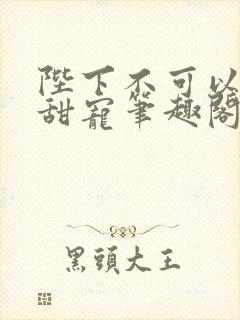 陛下不可以
甜寵筆趣閣
黑頭大王